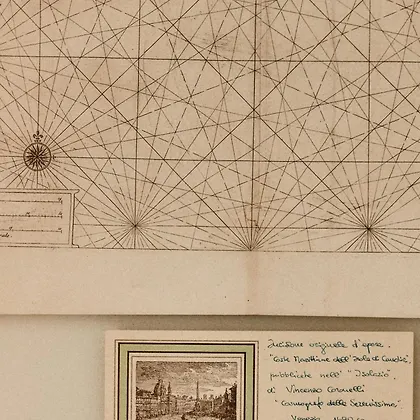 Incisione originale d'epoca.
"Coste Marittime dell'Isola di Candia",
pubblicate nell' "Isolario",
di Vincenzo Coronelli
"cosmografo della Serenissima",
Venezia